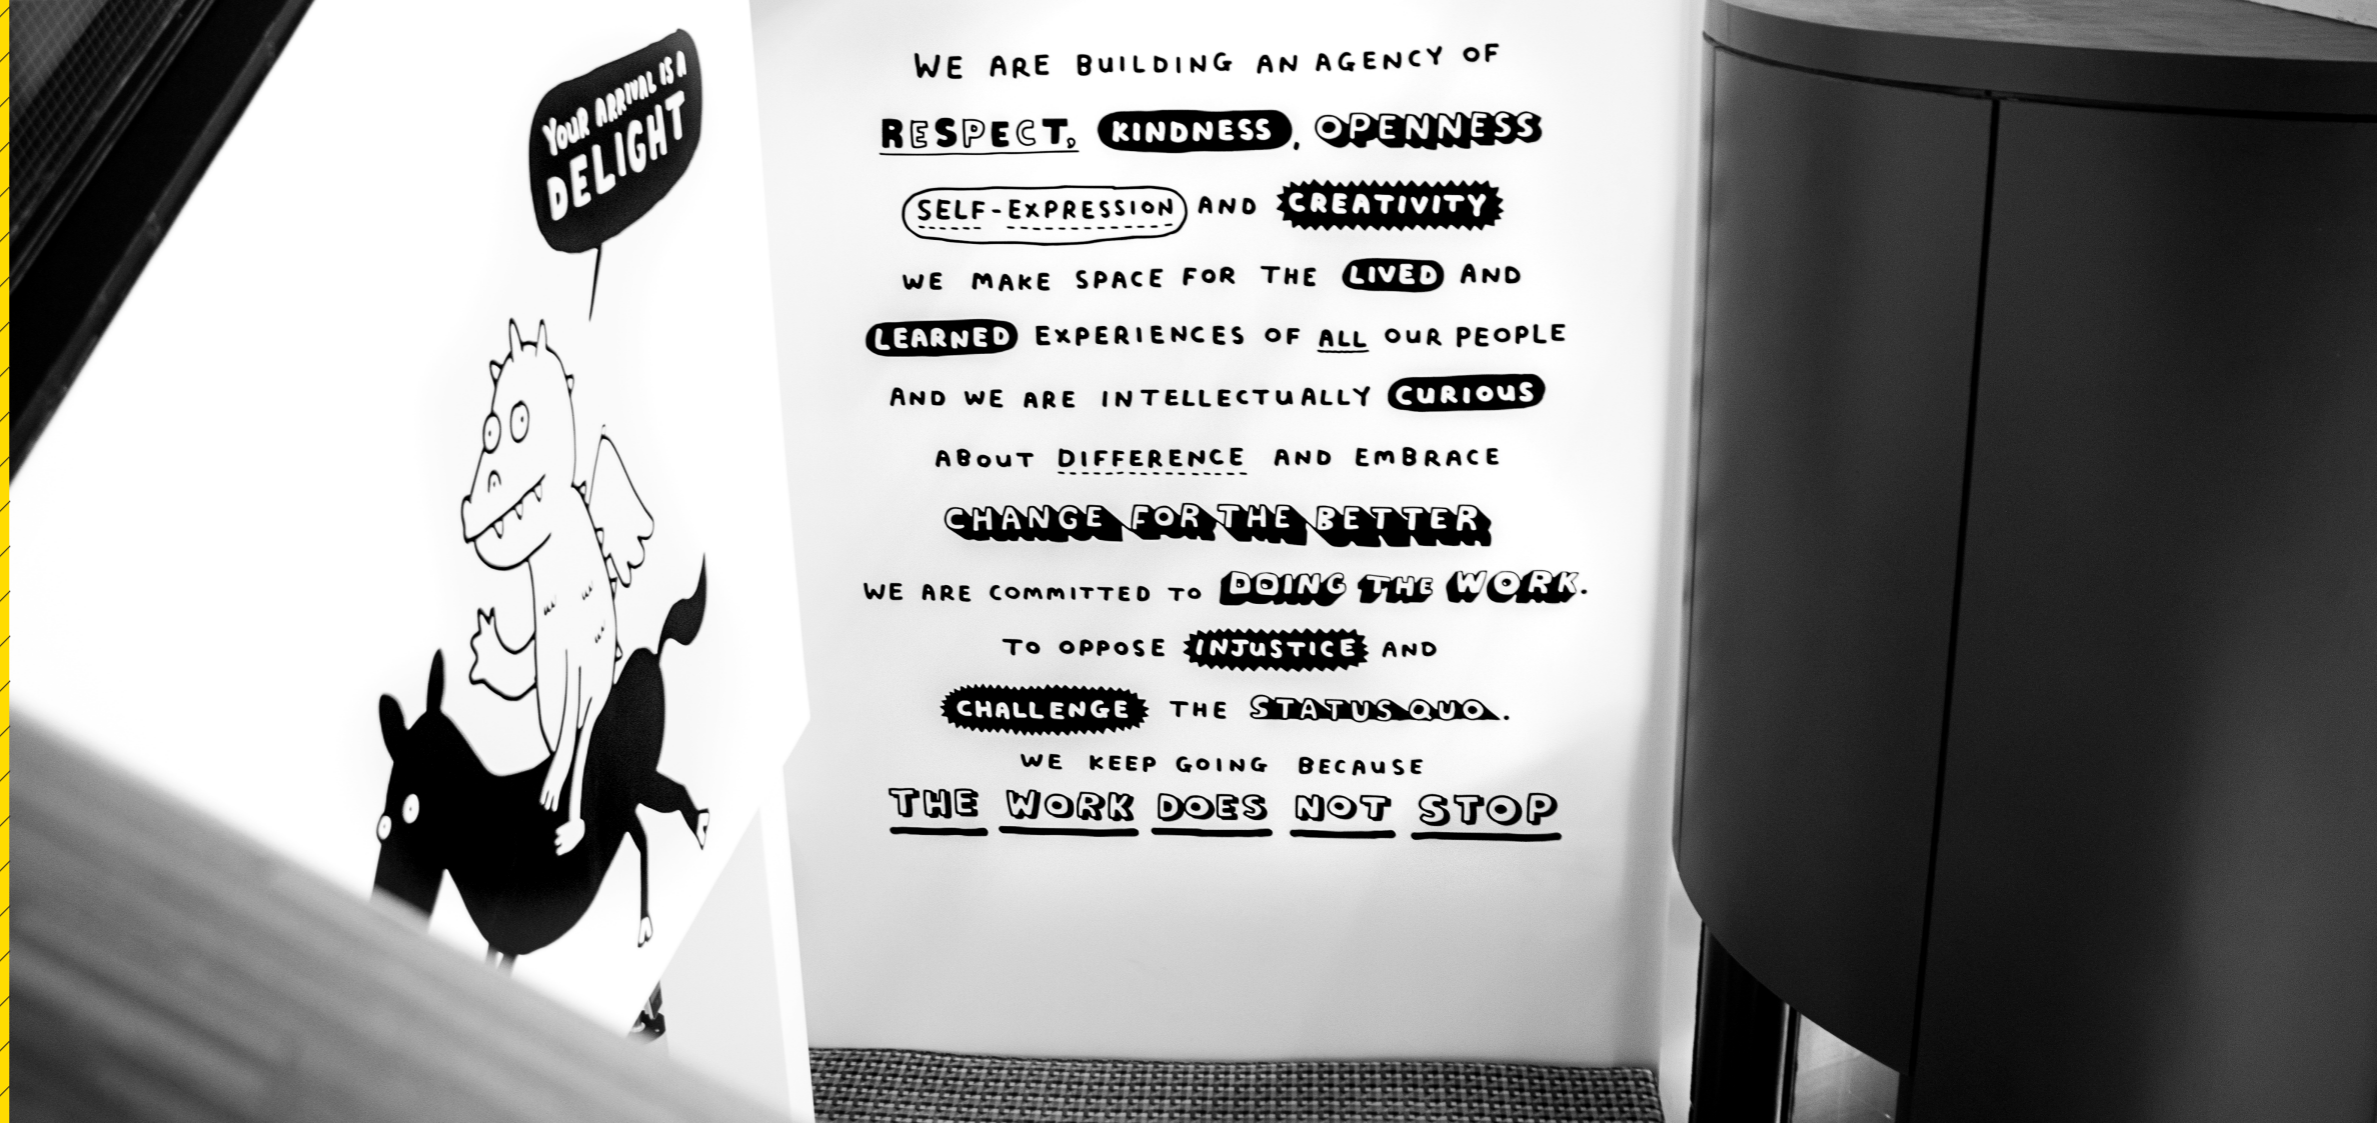 YOUR ARRIVAL IS A
DELIGHT
WE ARE BUILDING AN AGENCY OF
RESPECT, KINDNESS, OPENNESS
SELF-EXPRESSION AND CREATIVITY
WE MAKE SPACE FOR THE LIVED AND
LEARNED EXPERIENCES OF ALL OUR PEOPLE
AND WE ARE INTELLECTUALLY CURIOUS
ABOUT DIFFERENCE AND EMBRACE
CHANGE FOR THE BETTER
WE ARE COMMITTED TO DOING THE WORK.
TO OPPOSE INJUSTICE AND
CHALLENGE THE STATUS QUO.
WE KEEP GOING BECAUSE
THE WORK DOES NOT STOP